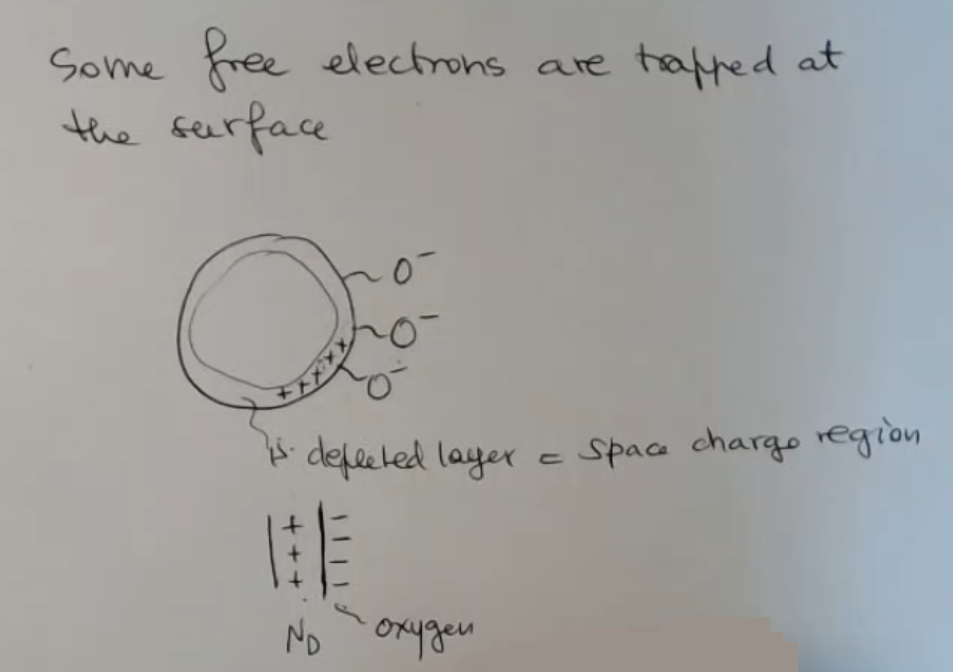 Some free electrons are trapped at
the surface
O⁻
O⁻
+ + + + + +
O⁻
is. depleted layer = space charge region
+ −
+ −
+ −
−
N_D oxygen